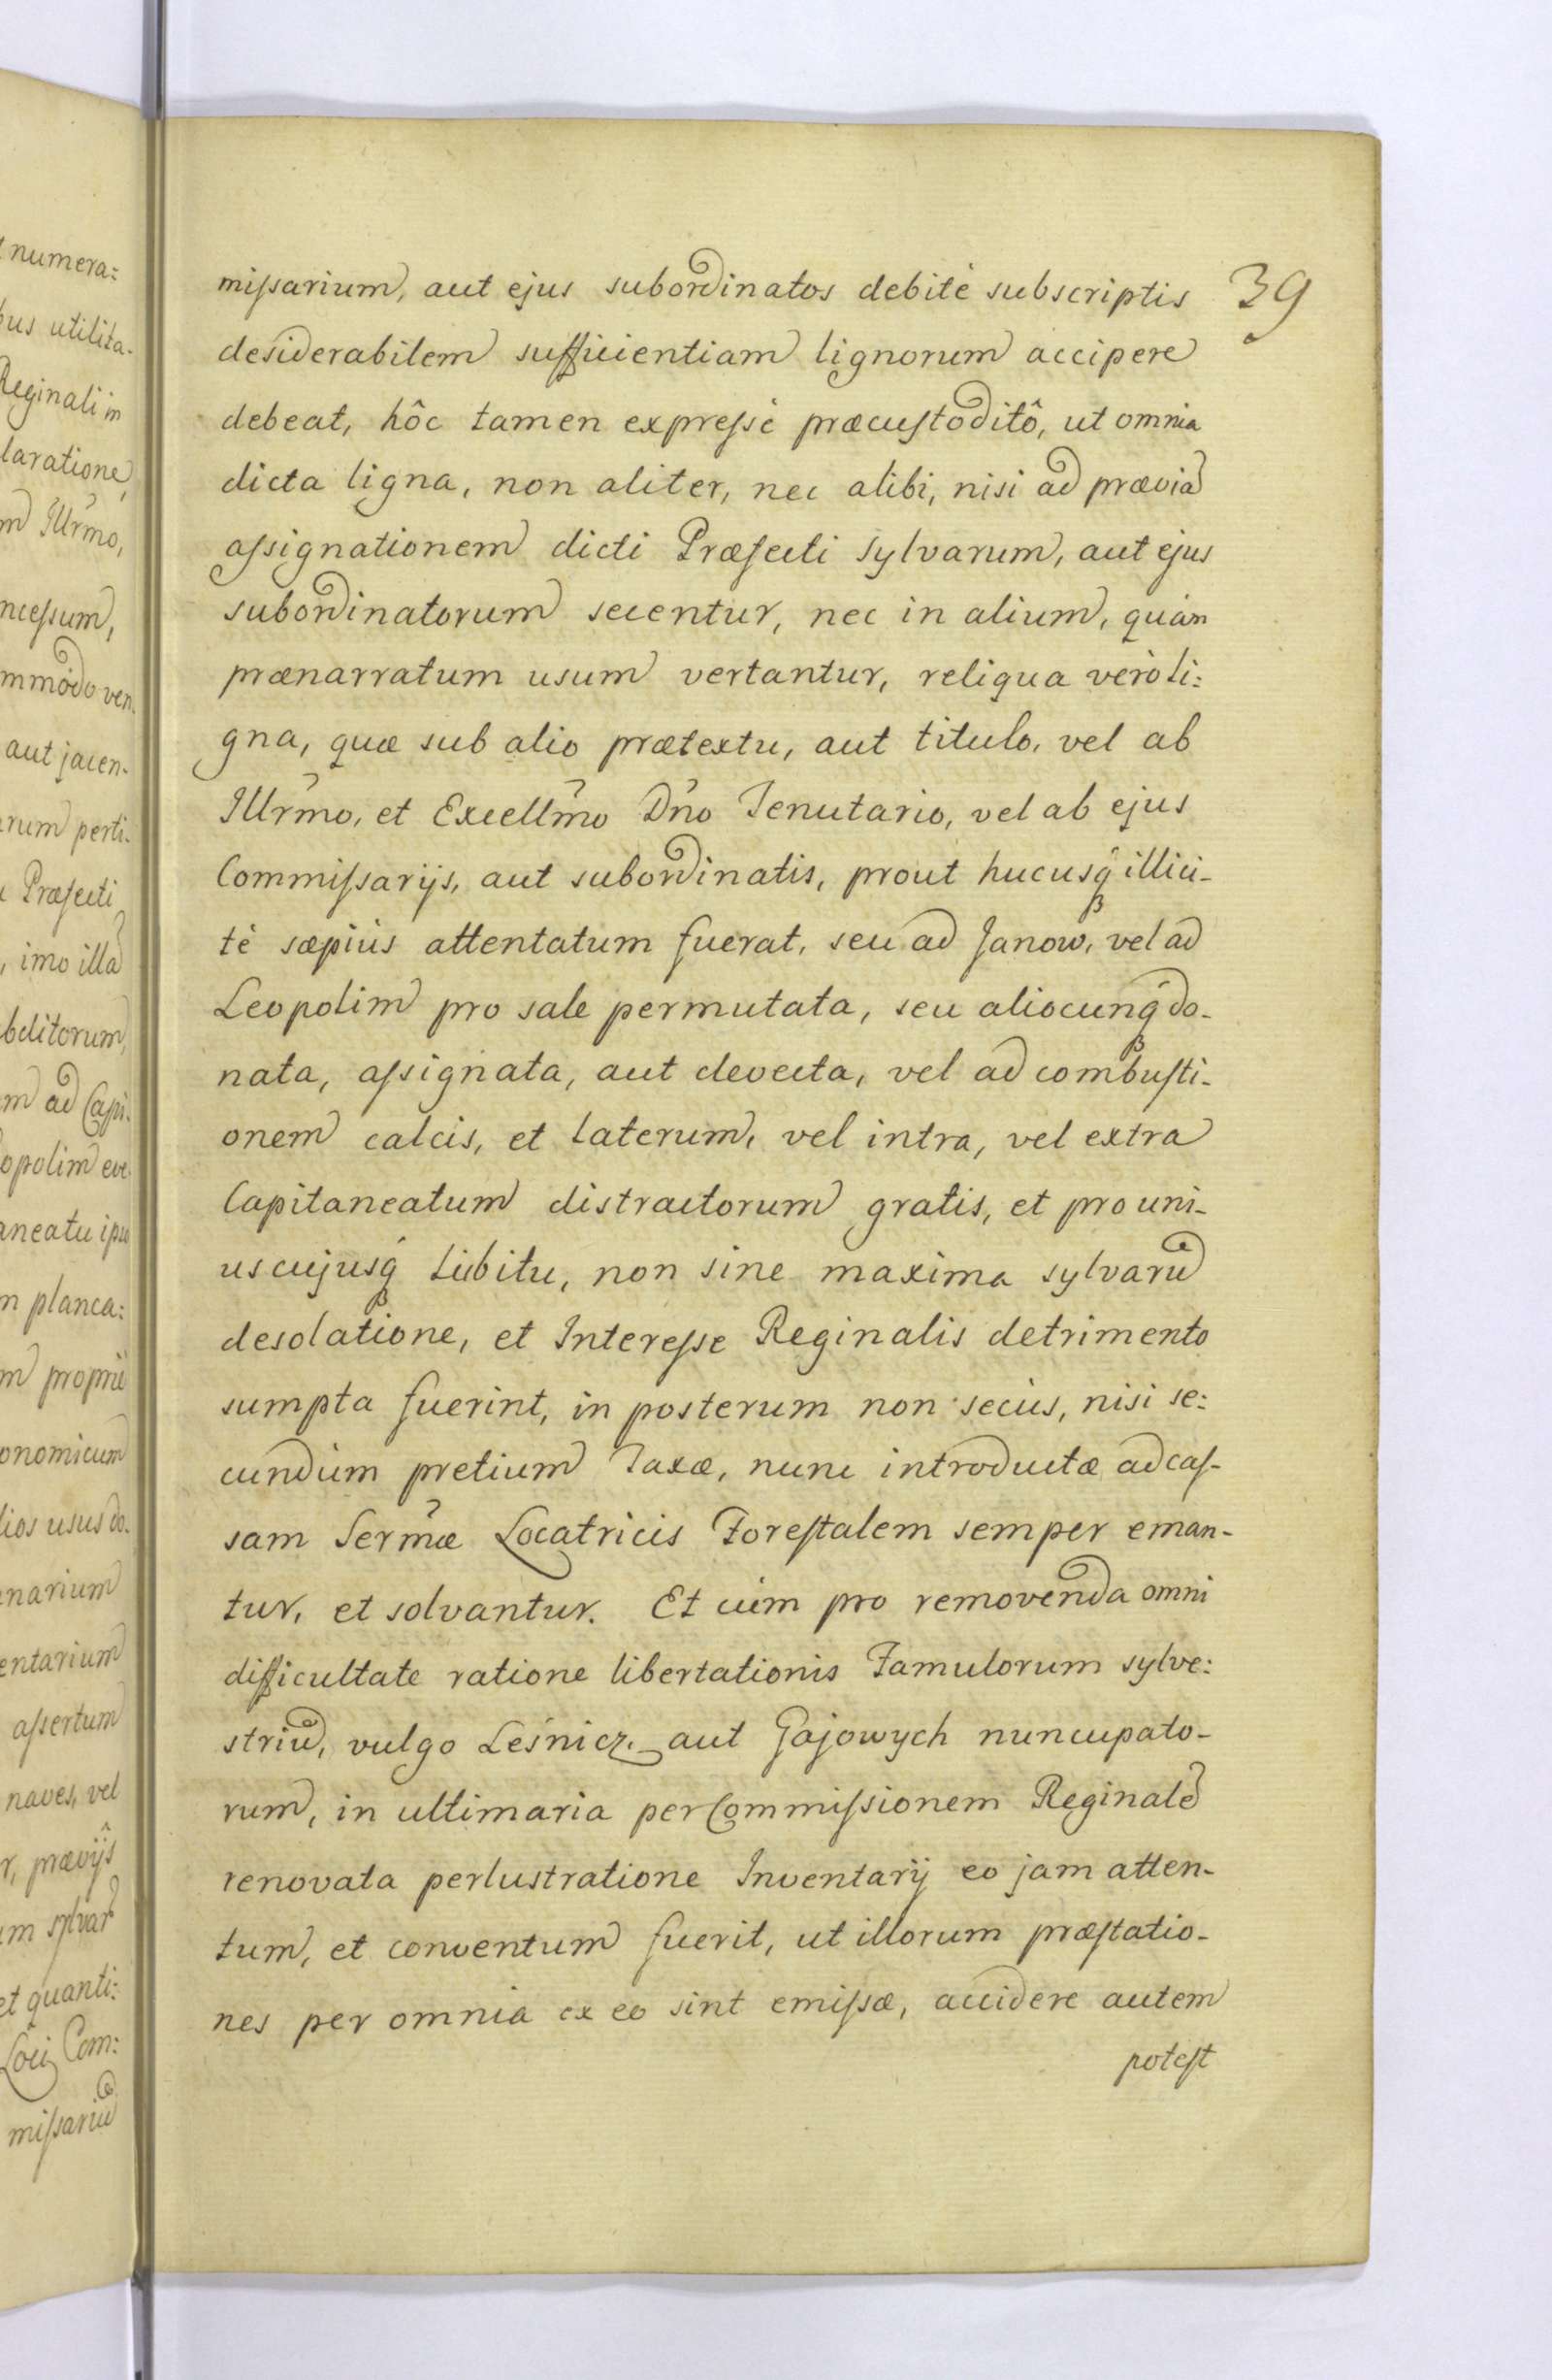 numera:
bus utilita-
Reginali in
laratione
m Illrmo,
ncessum,
mmodo ven-
aut jacen-
arum perti-
Præfecti
, imo illã
bditorum
m ad Capi-
opolim eve
aneatu ipso
m planca:
m proprie
onomicum
lios usus do-
narium
entarium
assertum
naves, vel
r, prævijs
um sylvar
et quanti:
Loci Com:
missariũ
39
missarium, aut ejus subordinatos debitè subscriptis
desiderabilem sufficientiam lignorum accipere
debeat, hôc tamen expressè præcustoditô, ut omnia
dicta ligna, non aliter, nec alibi, nisi ad præviã
assignationem dicti Præfecti sylvarum, aut ejus
subordinatorum secentur, nec in alium, quàm
prænarratum usum vertantur, reliqua verò li:
gna, quæ sub alio prætextu, aut titulo, vel ab
Illrmo, et Excellmo Dño Tenutario, vel ab ejus
Commissarijs, aut subordinatis, prout hucusq illici-
tè sæpiùs attentatum fuerat, seu ad Janow, vel ad
Leopolim pro sale permutata, seu aliocunq do-
nata, assignata, aut devecta, vel ad combusti-
onem calcis, et laterum, vel intra, vel extra
Capitaneatum distractorum gratis, et pro uni-
uscujusq lubitu, non sine maxima sylvarũ
desolatione, et Interesse Reginalis detrimento
sumpta fuerint, in posterum non secùs, nisi se:
cundùm pretium Taxæ, nunc introductæ ad cas-
sam Sermæ Locatricis Forestalem semper eman-
tur, et solvantur. Et cùm pro removenda omni
difficultate ratione libertationis Famulorum sylve:
striũ, vulgo Leśnicz. aut Gajowych nuncupato-
rum, in ultimaria per Commissionem Reginalẽ
renovata perlustratione Inventarij eo jam atten-
tum, et conventum fuerit, ut illorum præstatio-
nes per omnia ex eo sint emissæ, accidere autem
potest